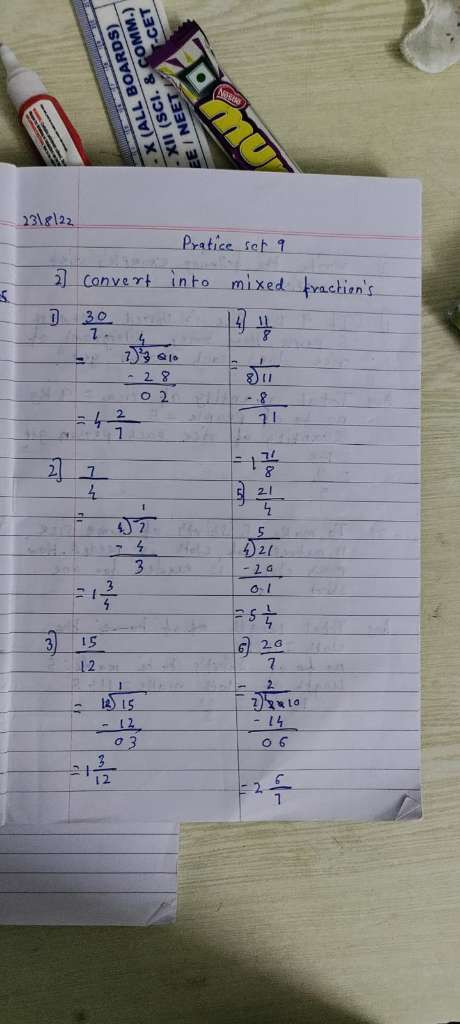 X (ALL BOARDS)
XII (SCI. & COMM.)
EE / NEET / -CET
Nestle
MU
23/8/22
Pratice set 9
2] convert into mixed fraction's
1] 30/7
4
7) 10
- 28
02
= 4 2/7
2] 7/4
=
1
4) 7
- 4
3
= 1 3/4
3) 15/12
1
= 12) 15
- 12
03
= 1 3/12
4] 11/8
1
= 8) 11
- 8
71
= 1 71/8
5] 21/4
5
4) 21
- 20
0.1
= 5 1/4
6] 20/7
2
= 7) 10
- 14
06
= 2 6/7